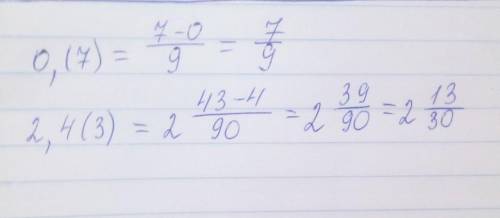 0,(7) = \frac{7-0}{9} = \frac{7}{9}
2,4(3) = 2 \frac{43-4}{90} = 2 \frac{39}{90} = 2 \frac{13}{30}